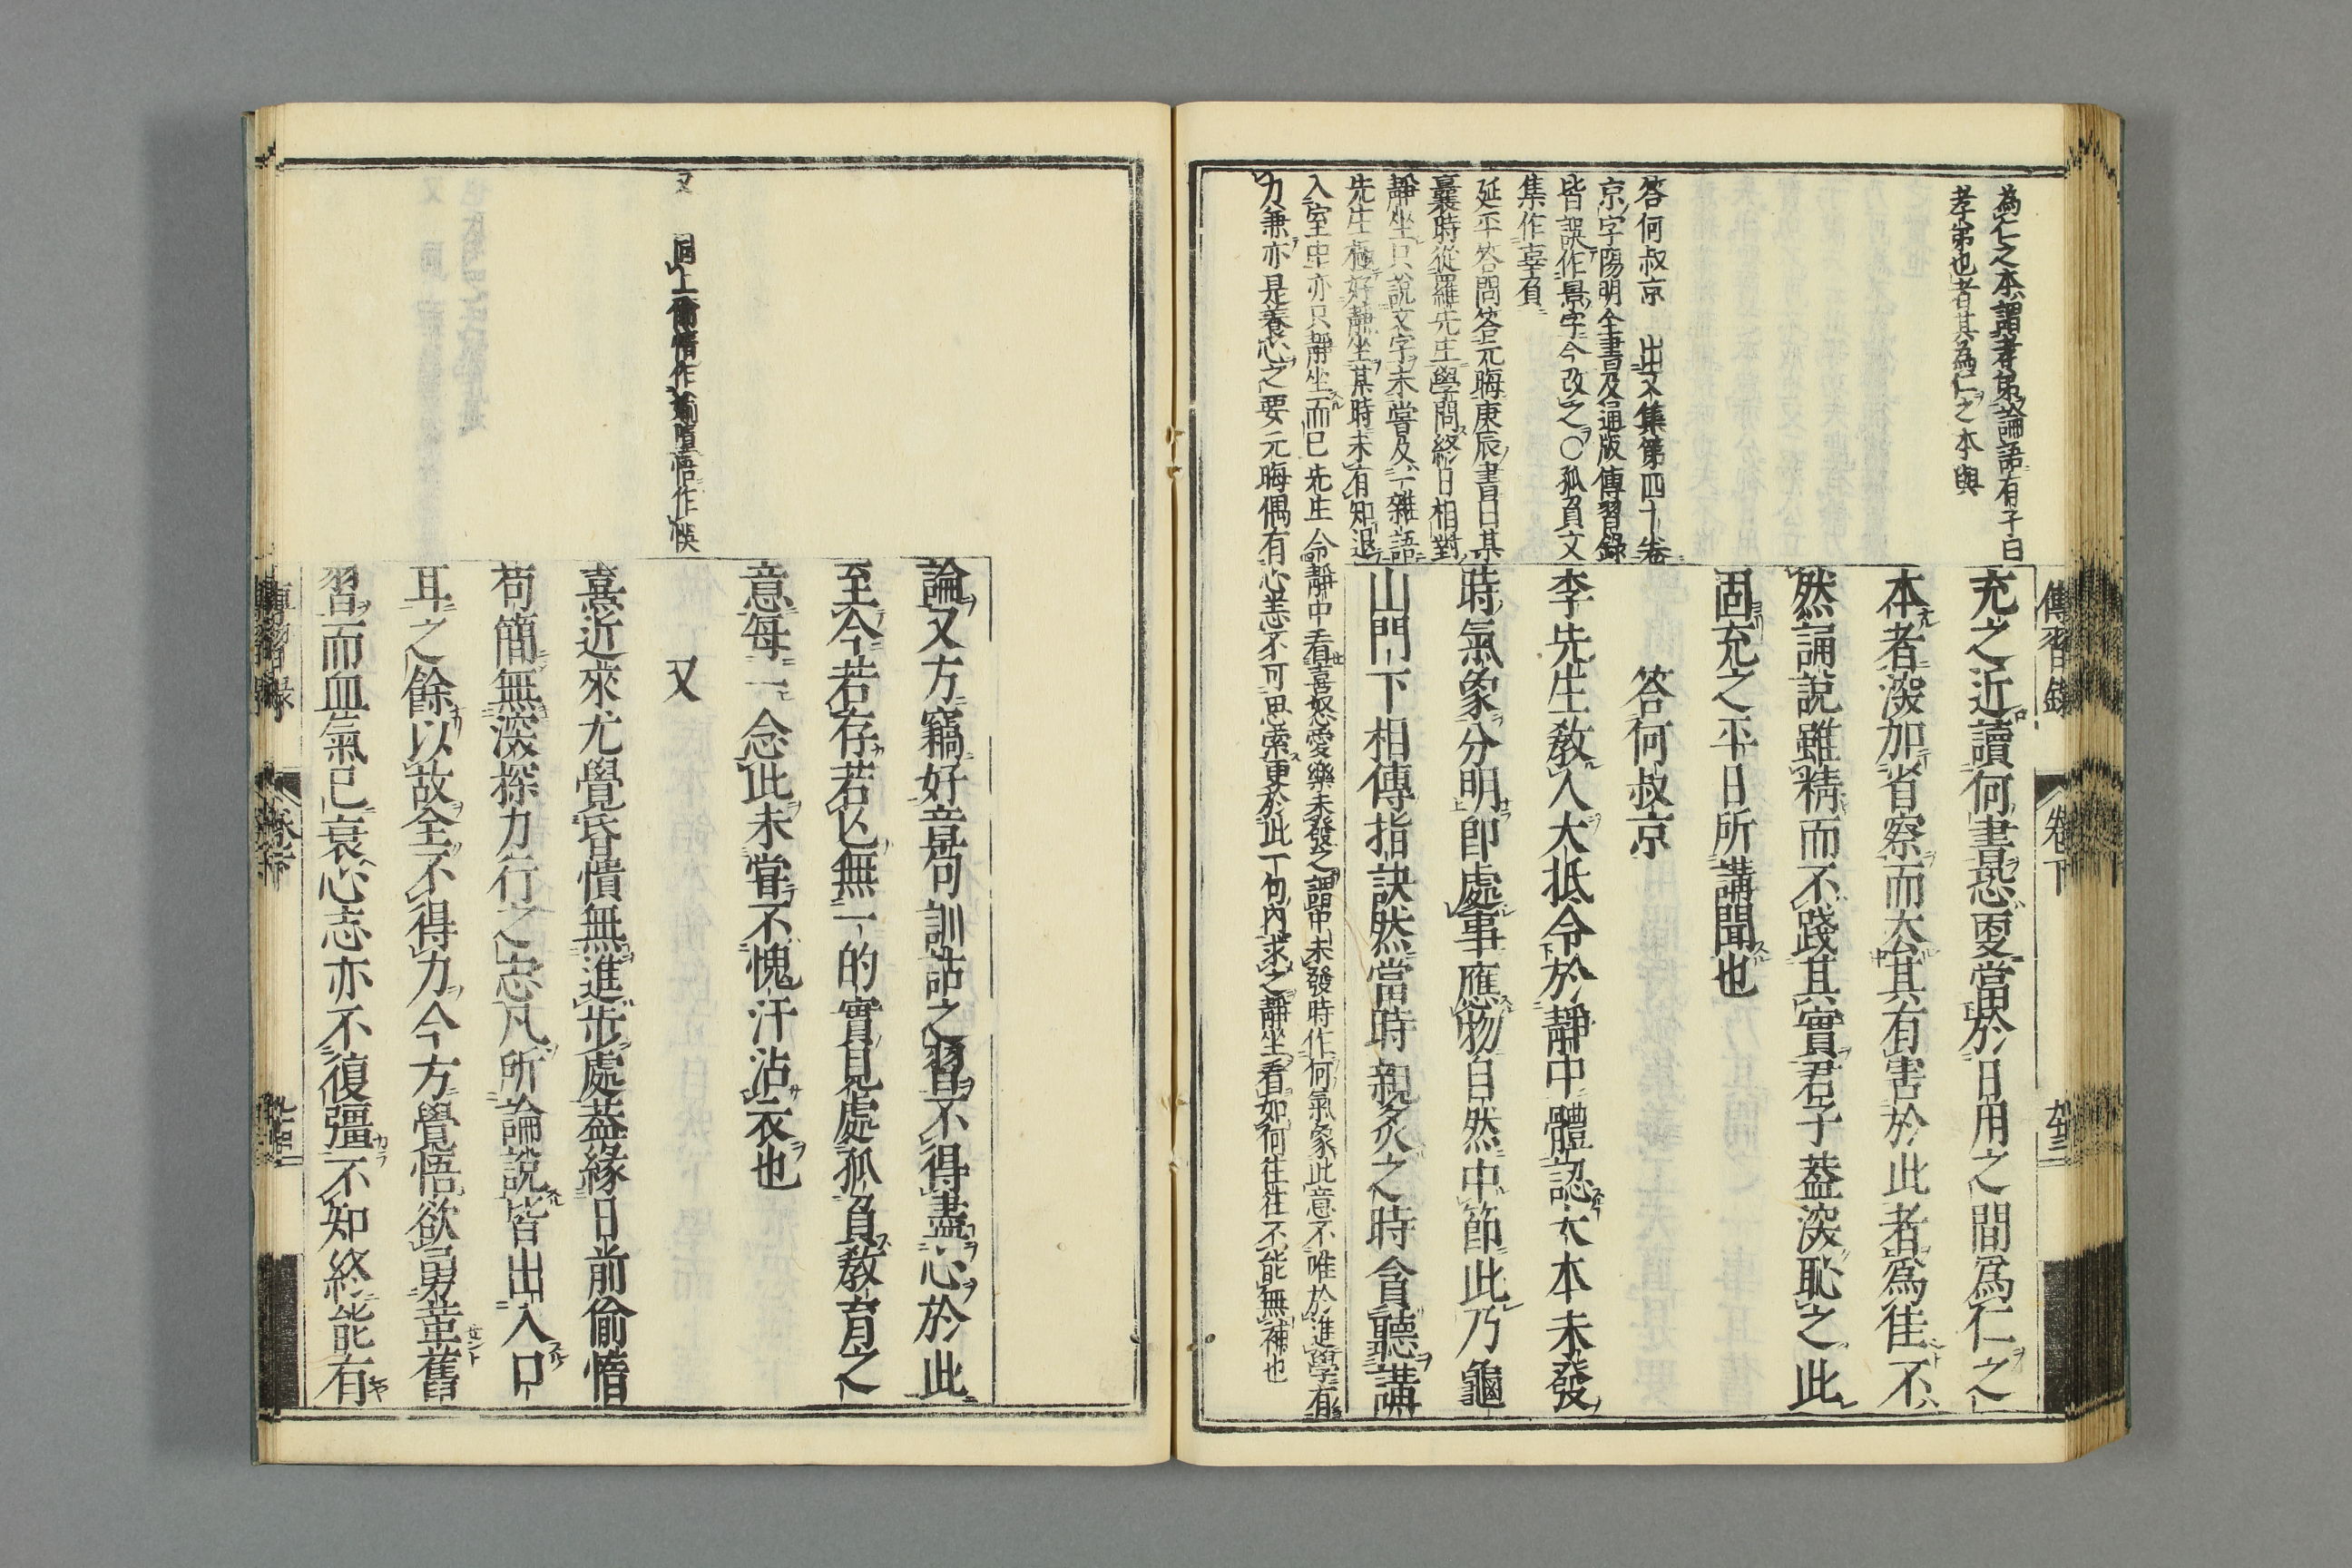 傳習錄
卷下
為仁之本謂孝弟論語有子曰
孝弟也者其為仁之本與
答何叔京 出文集第四十卷
京字陽明全書及通版傳習錄
皆誤作景字今改之〇孤負文
集作辜負
延平答問答元晦庚辰書曰某
曩時從羅先生學問終日相對
靜坐只說文字未嘗及一雜語
先生極好靜坐某時未有知退
入室中亦只靜坐而已先生令靜中看喜怒哀樂未發之謂中未發時作何氣象此意不唯於進學有
力兼亦是養心之要元晦偶有心恙不可思索更於此一句內求之靜坐看如何往往不能無補也
充之近讀何書恐更當於日用之間爲仁之
本者深加省察而去其有害於此者爲佳不
然誦說雖精而不踐其實君子蓋深恥之此
固充之平日所講聞也
答何叔京
李先生教人大抵令於靜中體認大本未發
時氣象分明即處事應物自然中節此乃龜
山門下相傳指訣然當時親炙之時貪聽講
論又方竊好章句訓詁之習不得盡心於此
至今若存若亡無一的實見處孤負教育之
意每一念此未嘗不愧汗沾衣也
又 同上偷惰作媮墮悟作悞
又
熹近來尤覺昏憒無進步處蓋緣日前偷惰
苟簡無深探力行之志凡所論說皆出入口
耳之餘以故全不得力今方覺悟欲勇革舊
習而血氣已衰心志亦不復彊不知終能有
傳習錄